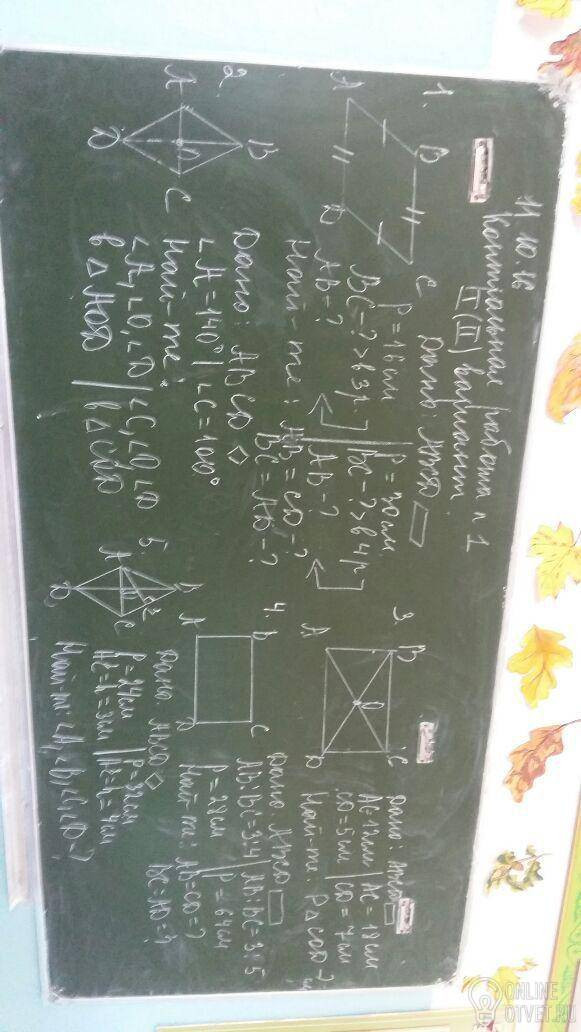 11.10.16
Контрольная работа n 1
I (II) вариант
1.
A B C D
Дано ABCD ▱
P = 16 см | P = 30 см
BC - ? > в 3 р. | BC - ? > в 4 р
AB - ? | AB - ?
Най-те: AB = CD - ?
BC = AD - ?
2.
A B C D O
Дано: ABCD ◇
∠A = 140° | ∠C = 100°
Най-те:
∠A, ∠O, ∠D | ∠C, ∠O, ∠D
в △ AOD | в △ COD
3.
A B C D O
Дано: ABCD ▭
AC = 12 см | AC = 18 см
CD = 5 см | CD = 7 см
Най-те P△COD - ?
4.
A B C D
Дано: ABCD ▭
AB:BC = 3:4 | AB:BC = 3:5
P = 28 см | P = 64 см
Най-те: AB = CD = ?
BC = AD = ?
5.
A C D
Дано ABCD ◇
P = 24 см | P = 32 см
h = 3 см | h = 4 см
Най-те: ∠A, ∠B, ∠C, ∠D - ?
ONLINE
OTVET.RU